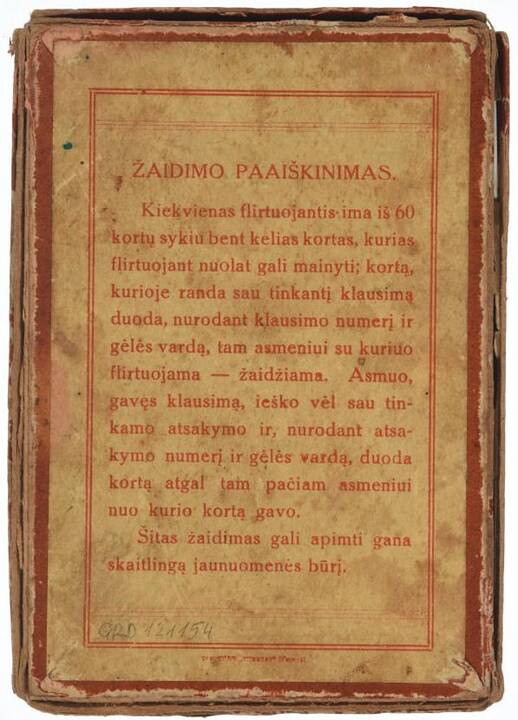 ŽAIDIMO PAAIŠKINIMAS.
Kiekvienas flirtuojantis ima iš 60
kortų sykiu bent kelias kortas, kurias
flirtuojant nuolat gali mainyti; kortą,
kurioje randa sau tinkantį klausimą
duoda, nurodant klausimo numerį ir
gėlės vardą, tam asmeniui su kuriuo
flirtuojama — žaidžiama. Asmuo,
gavęs klausimą, ieško vėl sau tin-
kamo atsakymo ir, nurodant atsa-
kymo numerį ir gėlės vardą, duoda
kortą atgal tam pačiam asmeniui
nuo kurio kortą gavo.
Šitas žaidimas gali apimti gana
skaitlingą jaunuomenės būrį.
GRD 121154